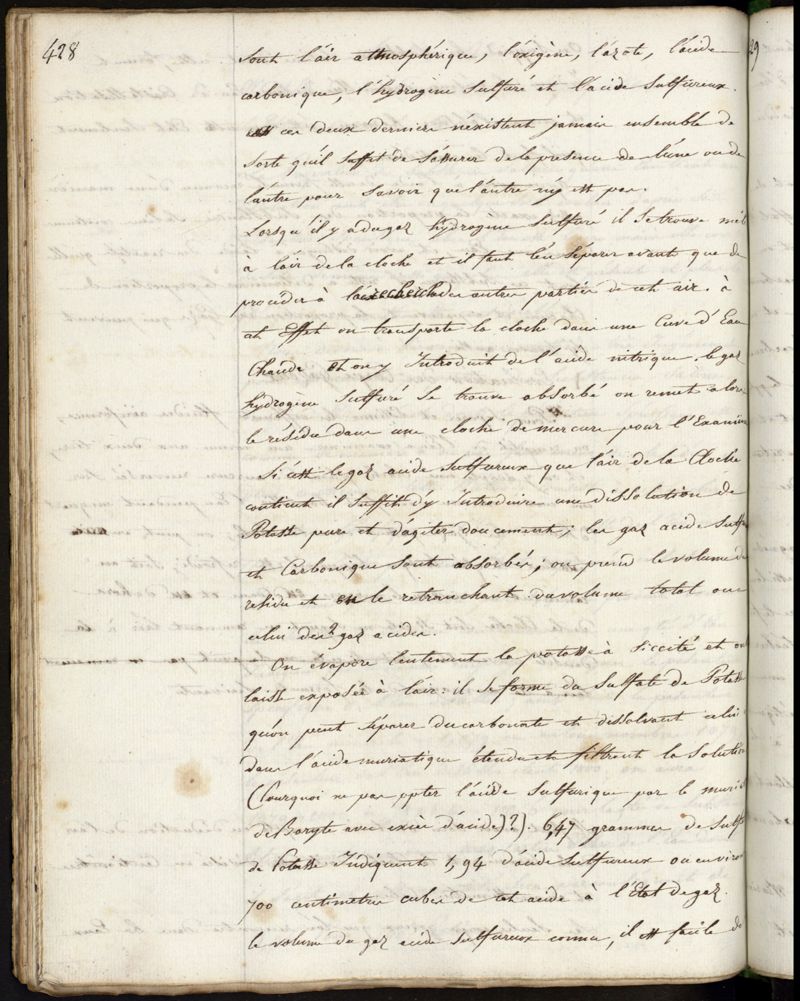 428
sont l'air atmosphérique, l'oxigène, l'azote, l'acide
carbonique, l'hydrogène sulfuré et l'acide sulfureux.
ces deux derniers n'existent jamais ensemble de
sorte qu'il suffit de s'assurer de la presence de l'une ou de
l'autre pour savoir que l'autre n'y est pas.
Lorsqu'il y a du gaz hydrogène sulfuré il se trouve mêl
à l'air de la cloche et il faut l'en séparer avant que de
procéder à la recherche des autres parties de cet air. à
cet effet on transporte la cloche dans une Cuve d'Eau
Chaude et on y Introduit de l'acide nitrique. le gaz
hydrogène sulfuré se trouve absorbé on remet alors
le résidu dans une cloche de mercure pour l'Examiner
Si c'est le gaz acide sulfureux que l'air de la Cloche
contient il suffit d'y Introduire une dissolution de
Potasse pure et d'agiter doucement; les gaz acide sulfu
et Carbonique sont absorbés; on prend le volume du
residu et en le retranchant du volume total on a
celui des 2 gaz acides.
On évapore lentement la potasse à siccité et on
laisse exposée à l'air: il se forme du sulfate de Potasse
qu'on peut séparer du carbonate en dissolvant celui
dans l'acide muriatique étendu et filtrant la solution
(Pourquoi ne pas ppter l'acide sulfurique par le muria
de Baryte avec excès d'acide)?). 6,47 grammes de sulfa
de Potasse Indiquent 1,94 d'acide sulfureux ou environ
700 centimetres cubes de cet acide à l'Etat de gaz.
le volume du gaz acide sulfureux connu, il est facile de
29